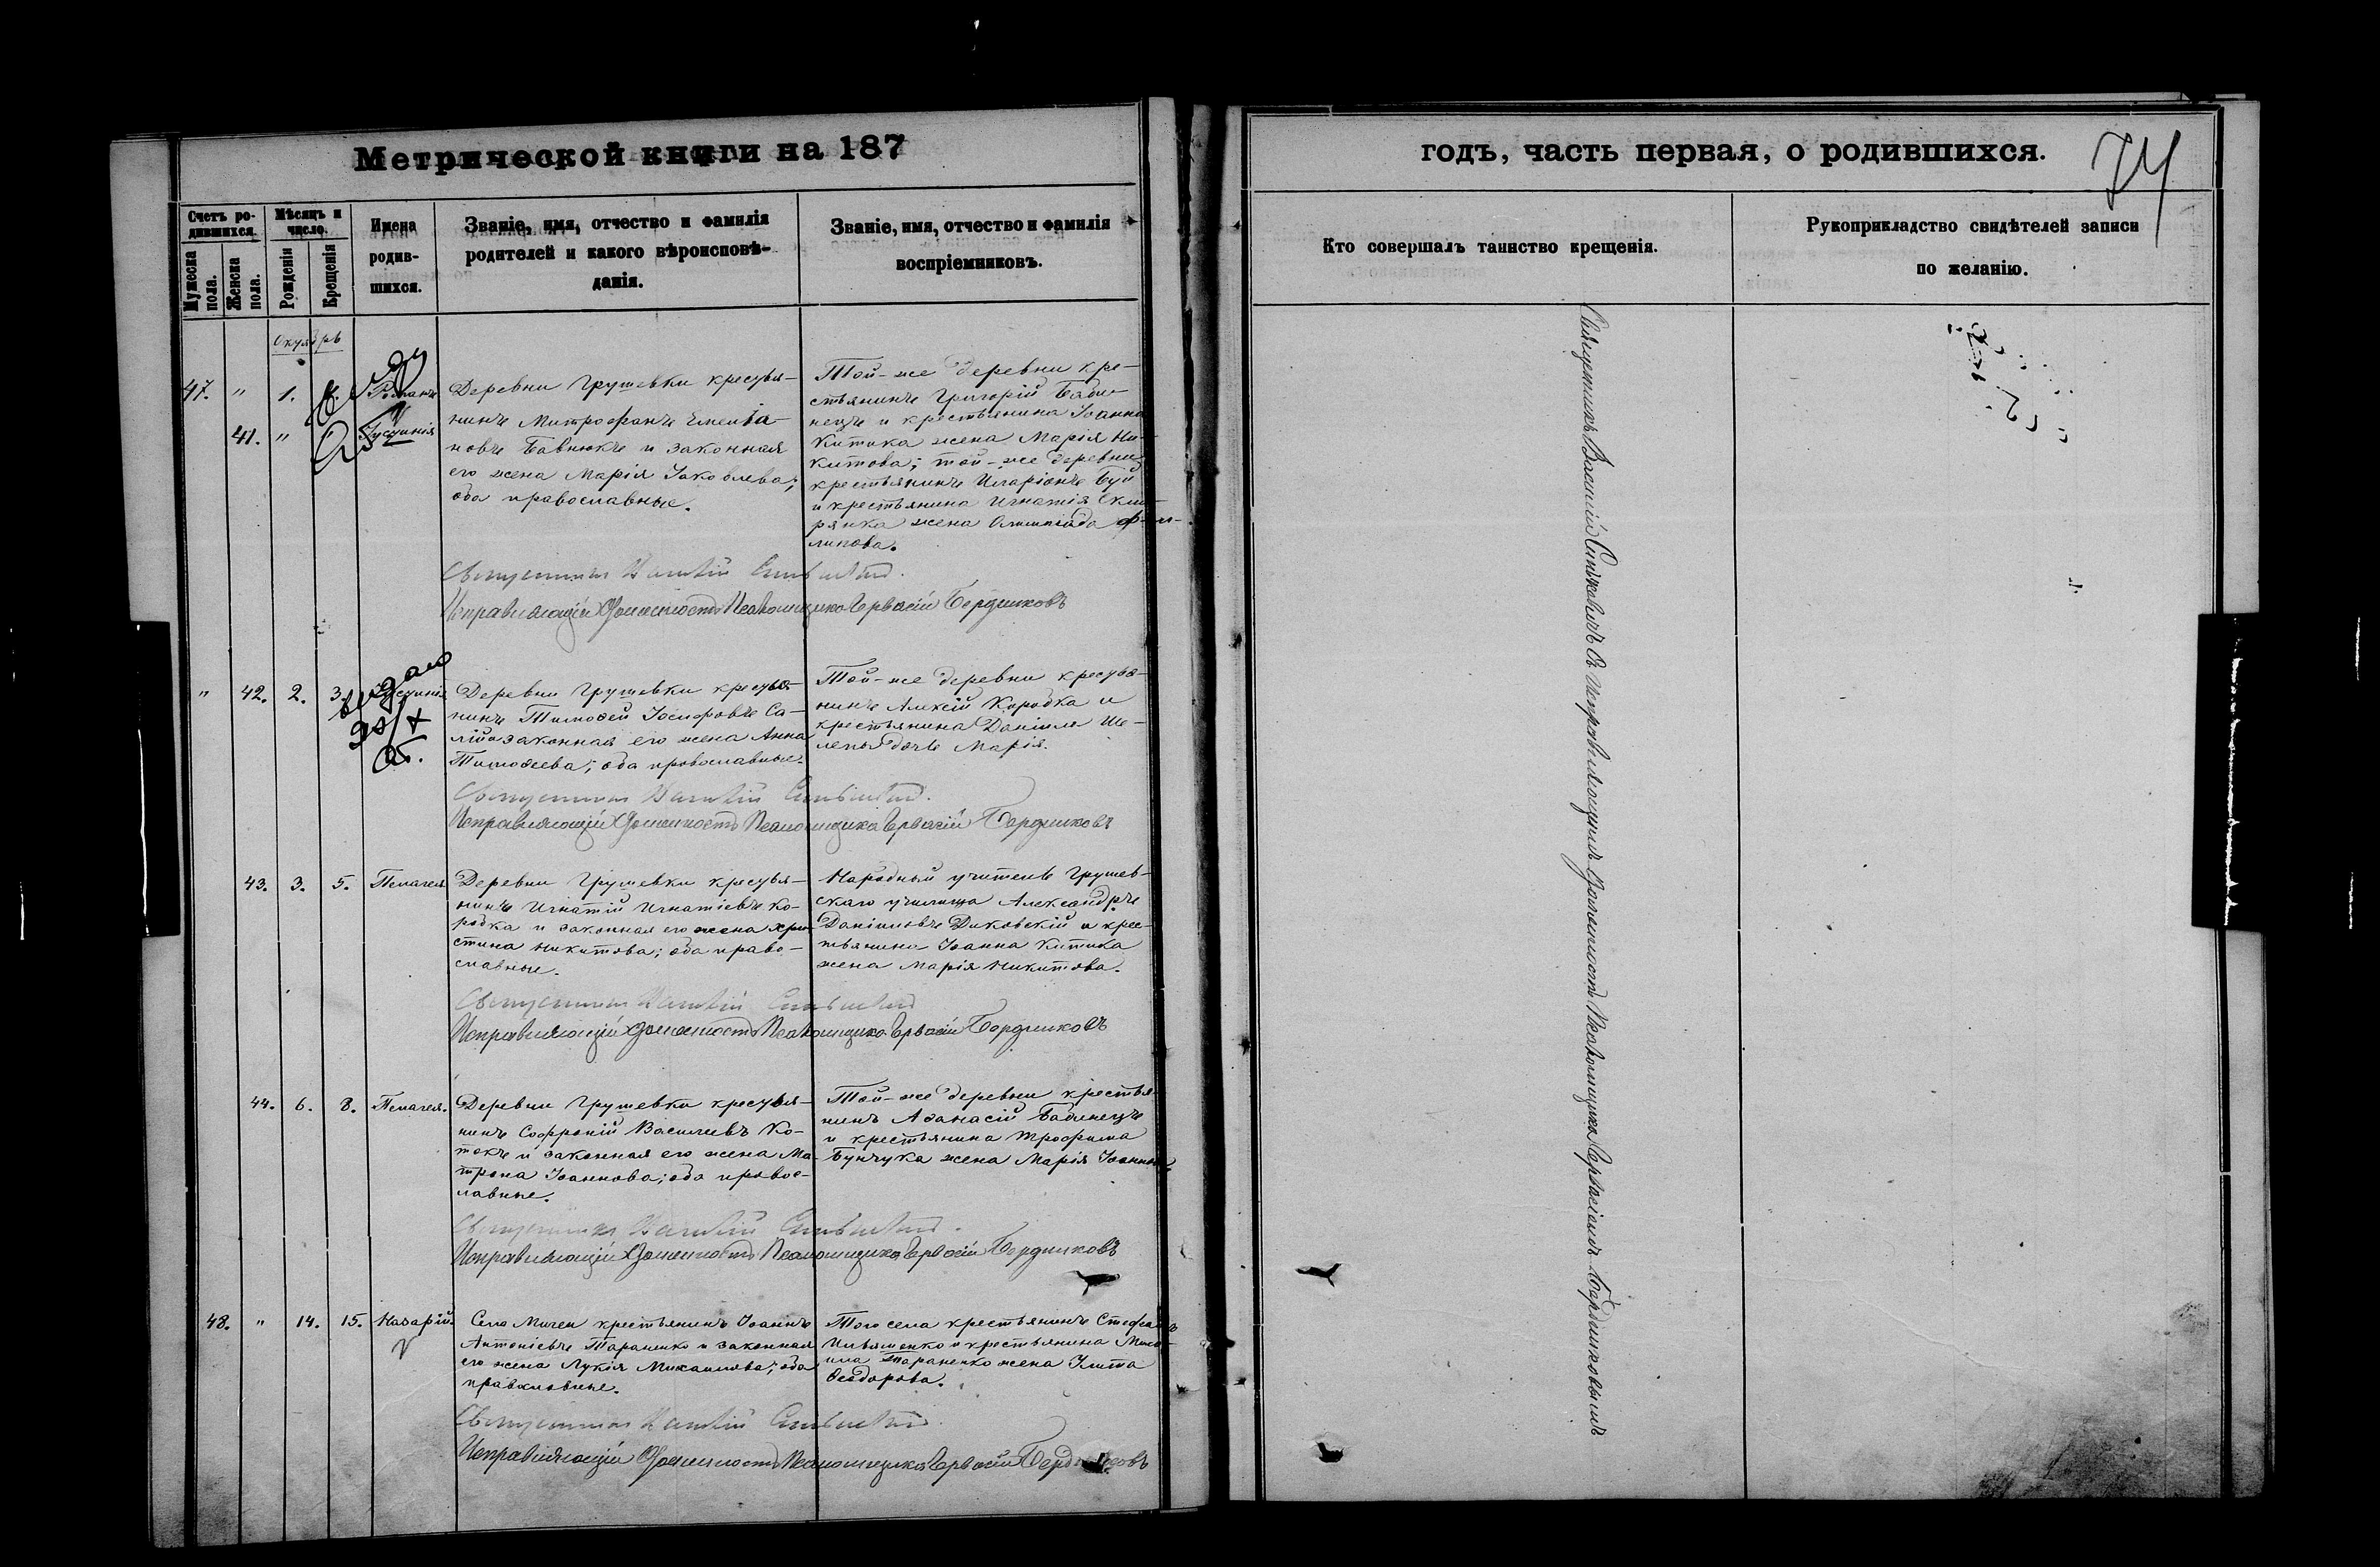 Метрической книги на 187
Счетъ ро-
дившихся.
Мужеска
пола.
Женска
пола.
Мѣсяцъ и
число.
Рожденія
Крещенія
Имена
родив-
шихся.
Званіе, имя, отчество и фамилія
родителей и какого вѣроисповѣ-
данія.
Званіе, имя, отчество и фамилія
воспріемниковъ.
47. " 1.
41. "
Іустинія
Деревни Грушевки крестья-
нинъ Митрофанъ
новъ Бавнюкъ и законная
его жена Марія Іаковлева;
оба православные.
Той-же деревни кре-
стьянинъ Григорій Баби-
нецъ и крестьянина Іоанна
Китика жена Марія Ни-
китова; той-же деревни
крестьянинъ Иларіонъ
и крестьянина Игнатія
жена Олимпіада Фи-
липова.
Священникъ Василій
Исправляющій должность Псаломщика Гервасій Бердниковъ
" 42. 2. 3. Іустинія
Деревни Грушевки крестья-
нинъ Тимофей Іосифовъ Са-
законная его жена Анна
Тимофеева; оба православные.
Той-же деревни крестья-
нинъ Алексій Коробка и
крестьянина Даніила Ше-
лепы дочь Марія.
Священникъ Василій
Исправляющій должность Псаломщика Гервасій Бердниковъ
43. 3. 5. Пелагея
Деревни Грушевки крестья-
нинъ Игнатій Игнатіевъ Ко-
робка и законная его жена Хри-
стина Никитова; оба право-
славные.
Народный учитель Грушев-
скаго училища Александръ
Даніиловъ Диковскій и крес-
тьянина Іоанна Китика
жена Марія Никитова.
Священникъ Василій
Исправляющій должность Псаломщика Гервасій Бердниковъ
44. 6. 8. Пелагея.
Деревни Грушевки крестья-
нинъ Софроній Васильевъ Ко-
токъ и законная его жена Ма-
трона Іоаннова; оба правос-
лавные.
Той-же деревни крестья-
нинъ Аѳанасій Бабинецъ
и крестьянина Трофима
Бунчука жена Марія
Священникъ Василій
Исправляющій должность Псаломщика Гервасій Бердниковъ
48. " 14. 15. Назарій.
Села крестьянинъ Іоаннъ
Антоніевъ Тараненко и законная
его жена Лукія Михаилова; оба
православные.
Того села крестьянинъ Стефанъ
Ильяшенко и крестьянина
Тараненко жена Улита
Ѳеодорова.
Священникъ Василій
Исправляющій должность Псаломщика Гервасій Бердниковъ
годъ, часть первая, о родившихся.
74
Кто совершалъ таинство крещенія.
Рукоприкладство свидѣтелей записи
по желанію.
Священникъ Василій съ исправляющимъ должность Псаломщика Гервасіемъ Бердниковымъ